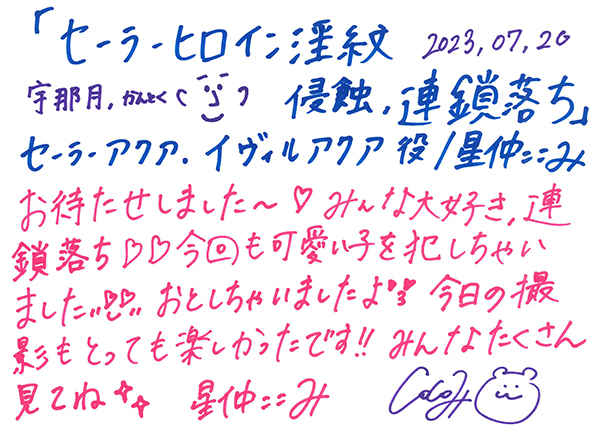 「セーラーヒロイン淫紋 2023.07.20
宇那月.かんとく 侵蝕.連鎖落ち」
セーラーアクア.イヴィルアクア役/星仲ここみ
お待たせしました～♡みんな大好き,連
鎖落ち♡♡今回も可愛い子を犯しちゃい
ました♡♡おとしちゃいましたよ♡今日の撮
影もとっても楽しかったです!!みんなたくさん
見てね 星仲ここみ CoCoみ